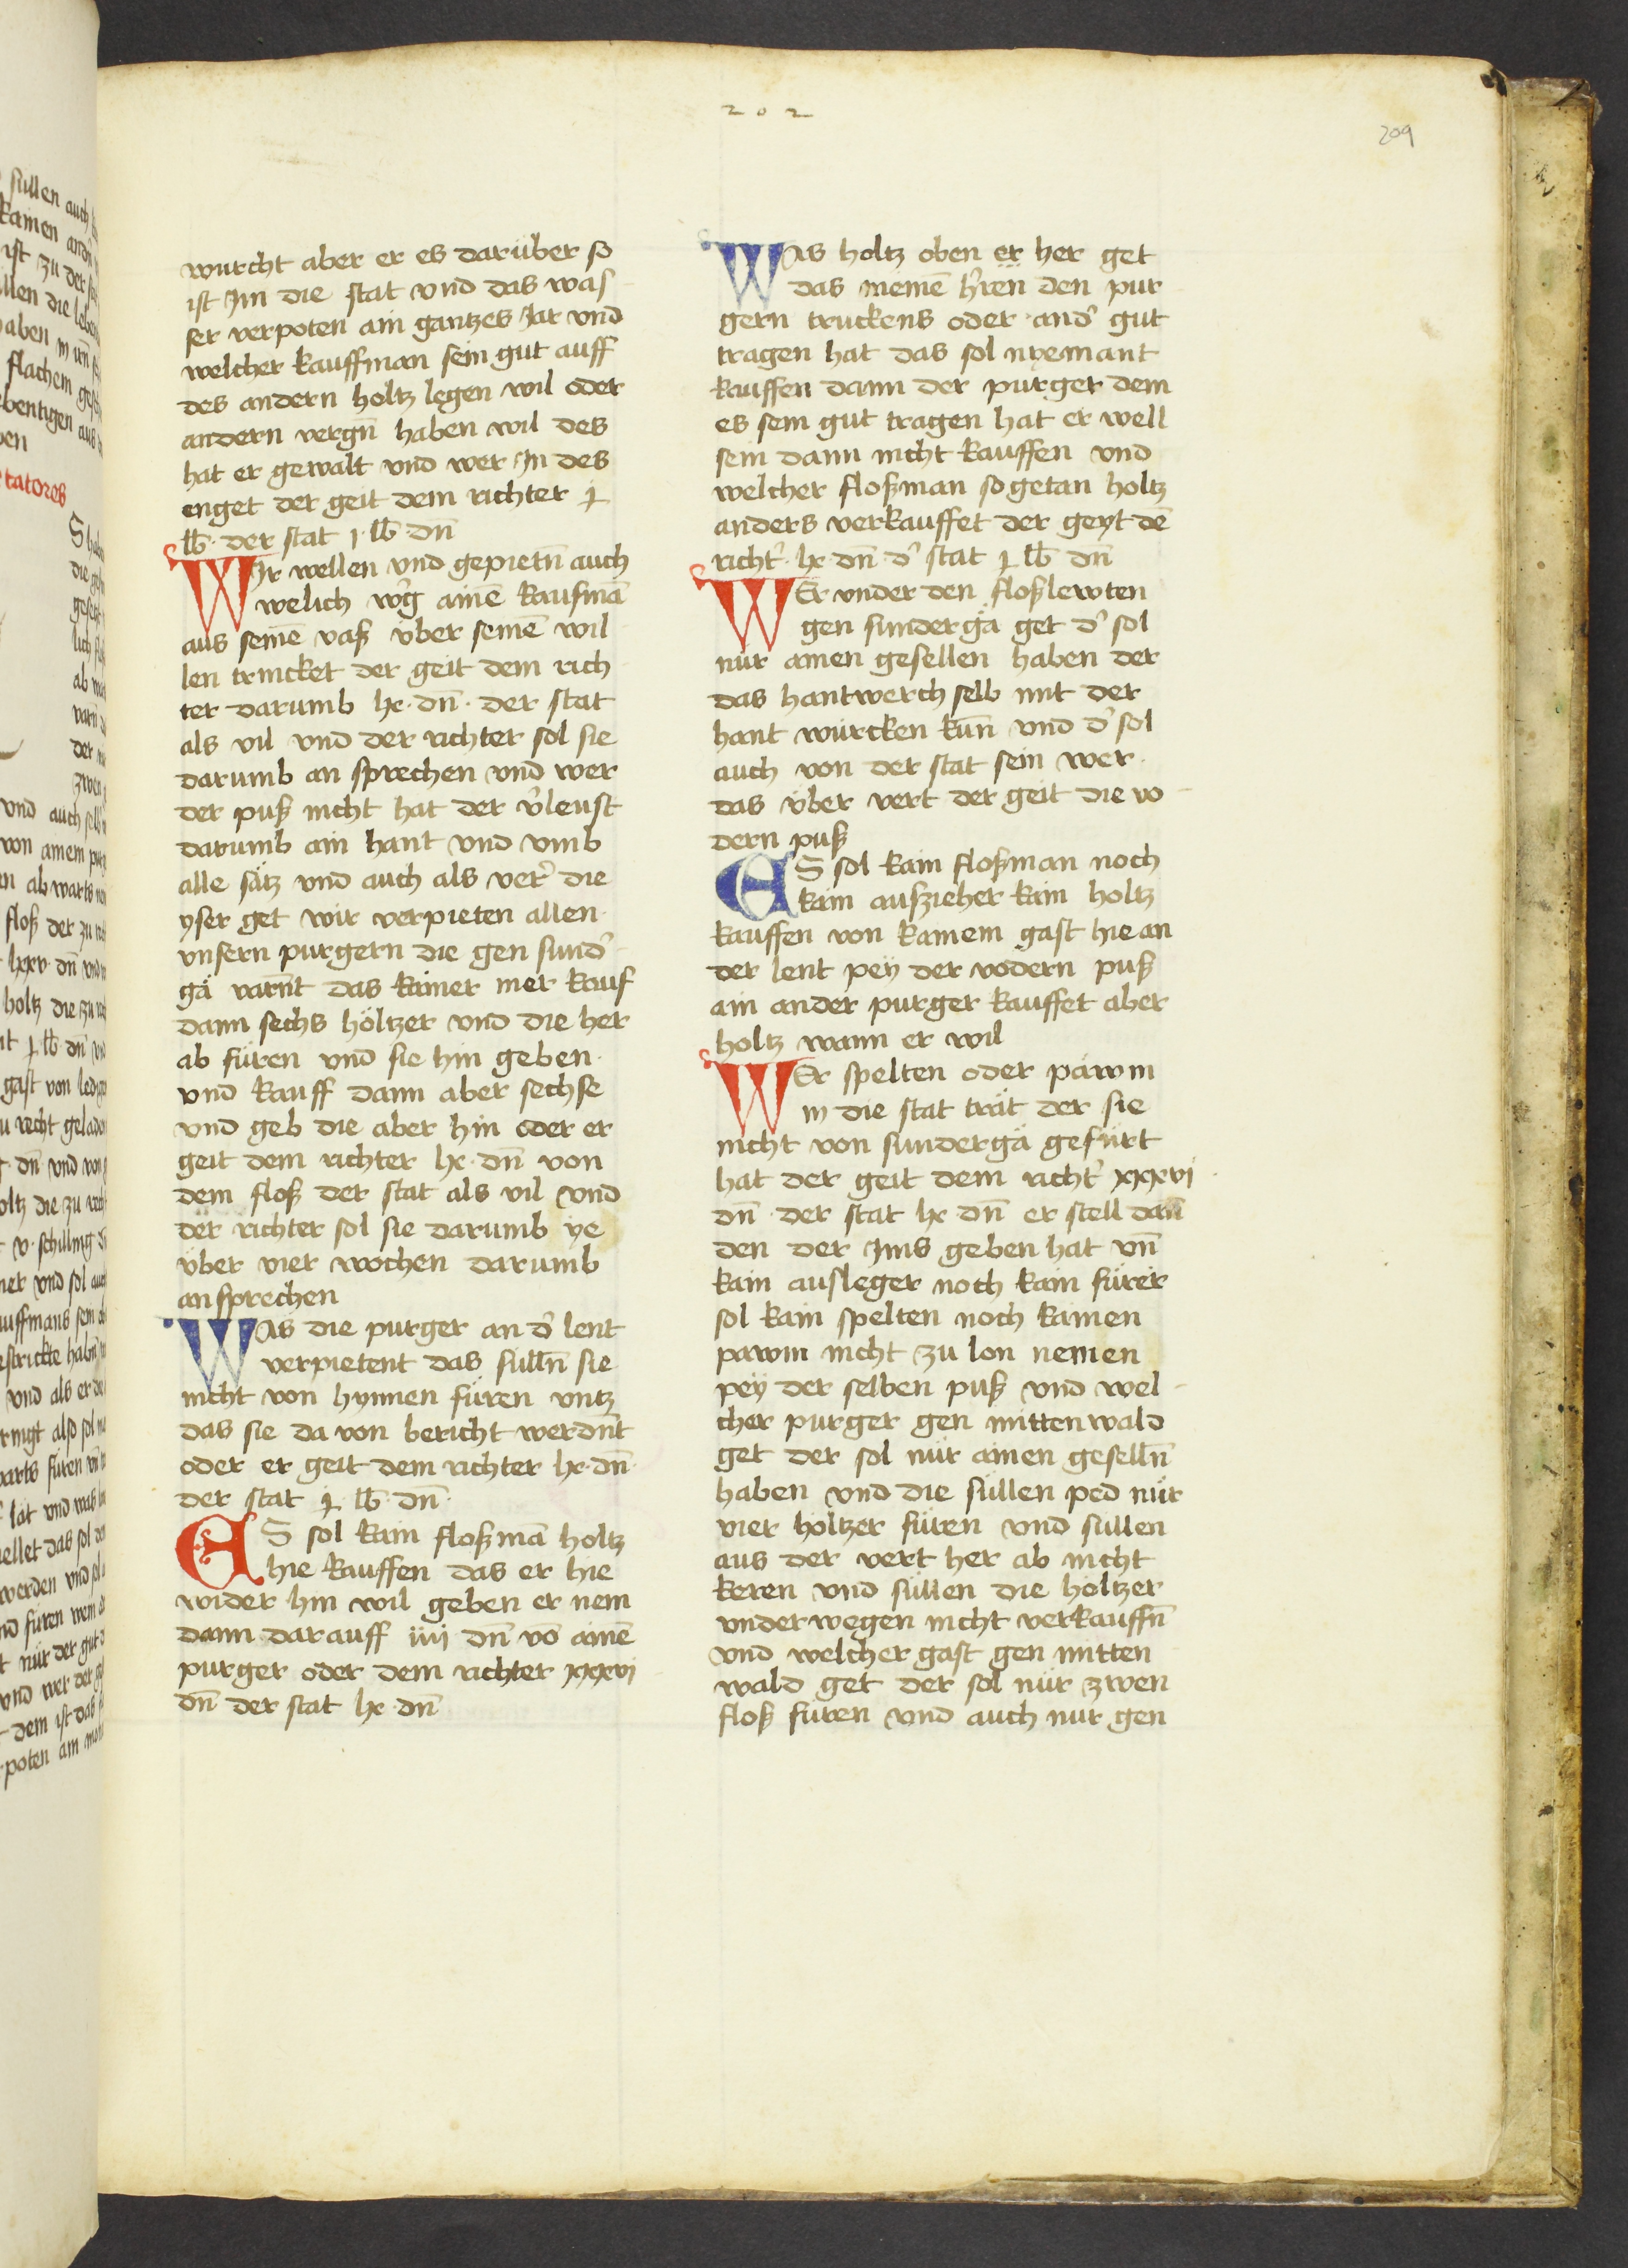 202
209
wurcht aber er es darüber so
ist Im die stat vnd das was
ser verpoten ain gantzes Jar vnd
welcher kauffman sein gut auff
des andern holtz legen wil oder
andern vergn̄ haben wil des
hat er gewalt vnd wer In des
enget der geit dem richter
lb̄ · der stat j · lb̄ · dn̄
WIr wellen vnd gepietn̄ auch
welich ainē kaufmā
aus seinē vaß über seinē wil
len trincket der geit dem rich
ter darumb lx · dn̄ · der stat
als vil vnd der richter sol sie
darumb an sprechen vnd wer
der puß nicht hat der v̓leust
darumb ain hant vnd vmb
alle sätz vnd auch als ver̓ die
yser get wir verpieten allen
vnsern purgern die gen sund̓
gä varn̄t das kainer mer kauf
dann sechs höltzer vnd die her
ab füren vnd sie hin geben
vnd kauff dann aber sechse
vnd geb die aber hin oder er
geit dem richter lx · dn̄ von
dem floß der stat als vil vnd
der richter sol sie darumb ye
über vier wochen darumb
ansprechen
WAs die purger an d̓ lent
verpietent das sülln̄ sie
nicht von hynnen füren vntz
das sie da von bericht werdn̄t
oder er geit dem richter lx · dn̄
der stat lb̄ · dn̄ ·
ES sol kain floßmā holtz
hie kauffen das er hie
wider hin wil geben er nem
dann darauff iiij dn̄ vō ainē
purger oder dem richter xxxvi
dn̄ der stat lx · dn̄
WAs holtz oben er her get
das meinē h̓ren den pur
gern truckens oder and̓ gut
tragen hat das sol nyemant
kauffen dann der purger dem
es sein gut tragen hat er well
sein dann nicht kauffen vnd
welcher floßman so getan holtz
anders verkauffet der geyt dē
richt̓ · lx dn̄ · d̓ stat lb̄ dn̄
WEr vnder den floßlewten
gen sundergä get d̓ sol
nür ainen gesellen haben der
das hantwerch selb mit der
hant würcken kün̄ vnd d̓ sol
auch von der stat sein wer
das über vert der geit die vo
dern puß
ES sol kain floßman noch
kain auszieher kain holtz
kauffen von kainem gast hie an
der lent pey der vodern puß
ain ander purger kauffet aber
holtz wann er wil
WEr spelten oder päwm
in die stat trät der sie
nicht von sundergä gefürt
hat der geit dem richt̓ xxxvi
dn̄ · der stat lx · dn̄ er stell dan̄
den der Ims geben hat vn̄
kain ausleger noch kain fürer
sol kain spelten noch kainen
pawm nicht zu lon nemen
pey der selben puß vnd wel
cher purger gen mittenwald
get der sol nür ainen geselln̄
haben vnd die süllen ped nür
vier höltzer füren vnd süllen
aus der vert her ab nicht
keren vnd süllen die höltzer
vnderwegen nicht verkauffn̄
vnd welcher gast gen mitten
wald get der sol nür zwen
floß füren vnd auch nur gen